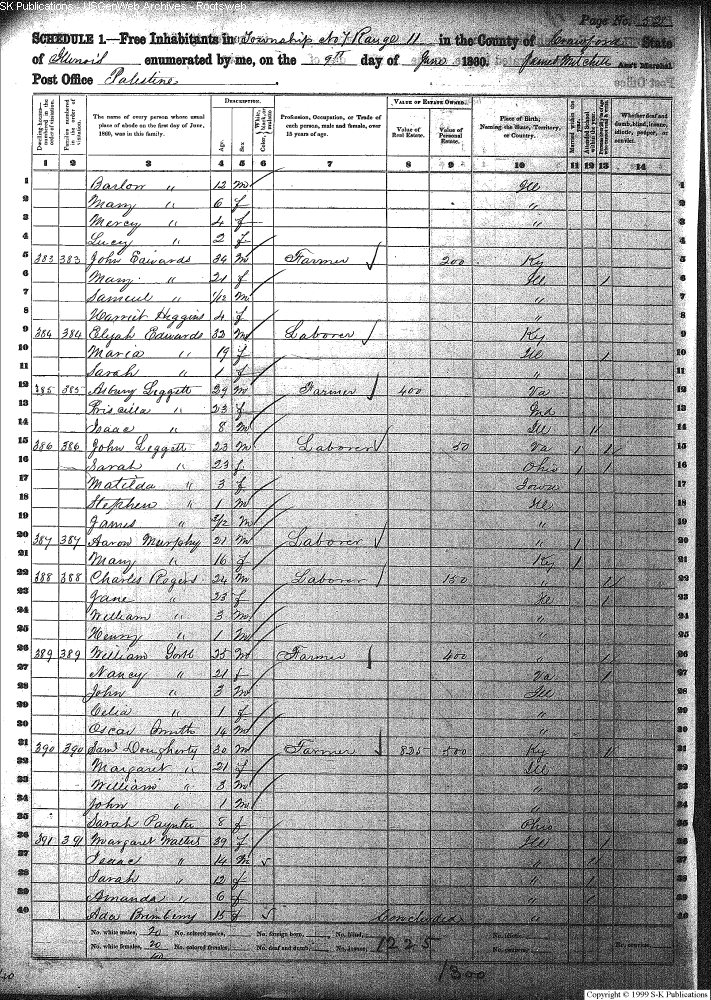 SK Publications - USGenWeb Archives - Rootsweb
Page No.
SCHEDULE 1.—Free Inhabitants in Township No 7 Range 11 in the County of Crawford State
of Illinois enumerated by me, on the 9th day of June 1860. James Mitchell Ass't Marshal
Post Office Palestine
Dwelling-houses—numbered in the order of visitation.
Families numbered in the order of visitation.
The name of every person whose usual place of abode on the first day of June, 1860, was in this family.
DESCRIPTION.
Age.
Sex
Color, White, black, or mulatto
Profession, Occupation, or Trade of each person, male and female, over 15 years of age.
VALUE OF ESTATE OWNED.
Value of Real Estate.
Value of Personal Estate.
Place of Birth, Naming the State, Territory, or Country.
Married within the year.
Attended School within the year.
Whether deaf and dumb, blind, insane, idiotic, pauper, or convict.
1 2 3 4 5 6 7 8 9 10 11 12 13 14
1 Barlow " 12 m Ill 1
2 Mary " 6 f " 2
3 Mercy " 4 f " 3
4 Lucy " 2 f 4
5 383 383 John Edwards 34 m Farmer 200 Ky 5
6 Mary " 21 f Ill / 6
7 Samuel " 1/12 m " 7
8 Harriet Higgins 4 f " 8
9 384 384 Elijah Edwards 32 m Laborer Ky 9
10 Maria " 19 f Ill / 10
11 Sarah " 1 f " 11
12 385 385 Asbury Leggett 29 m Farmer 400 Va 12
13 Priscilla " 23 f Ind 13
14 Isaac " 8 m Ill 14
15 386 386 John Leggett 23 m Laborer 50 Va / / 15
16 Sarah " 23 f Ohio / / 16
17 Matilda " 3 f Iowa 17
18 Stephen " 1 m Ill 18
19 James " 2/12 m " 19
20 387 387 Aaron Murphy 21 m Laborer " / 20
21 Mary " 16 f Ky / 21
22 388 388 Charles Rogers 24 m Laborer 150 " / 22
23 Jane " 23 f / 23
24 William " 3 m " 24
25 Henry " 1 m " 25
26 389 389 William 25 m Farmer 400 " / 26
27 Nancy " 21 f Va / 27
28 John " 3 m Ill 28
29 Celia " 1 f " 29
30 Oscar Smith 14 m " 30
31 390 390 Saml Dougherty 30 m Farmer 825 500 Ky / 31
32 Margaret " 21 f Ill 32
33 William " 3 m " 33
34 John " 1 m " 34
35 Sarah Paynter 8 f Ohio 35
36 391 391 Margaret 39 f Ill / 36
37 Isaac " 14 m " 37
38 Sarah " 12 f " / 38
39 Amanda " 6 f " / 39
40 Ada 15 f Concluded " 40
No. white males, 20 No. colored males, No. foreign born, No. blind, No. idiotic,
No. white females, 20 No. colored females, No. deaf and dumb, No. insane, No. paupers, No. convicts,
1225
1300
Copyright © 1999 S-K Publications